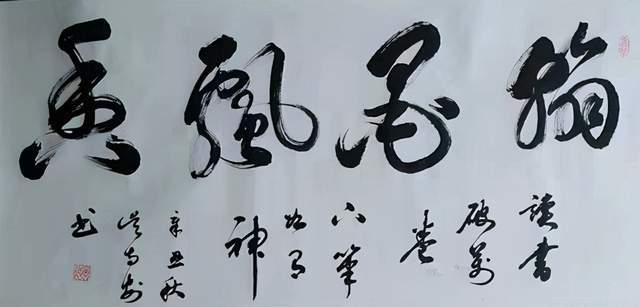 翰墨飄香
讀書
破萬
卷
下筆
如有
神
辛丑秋
书